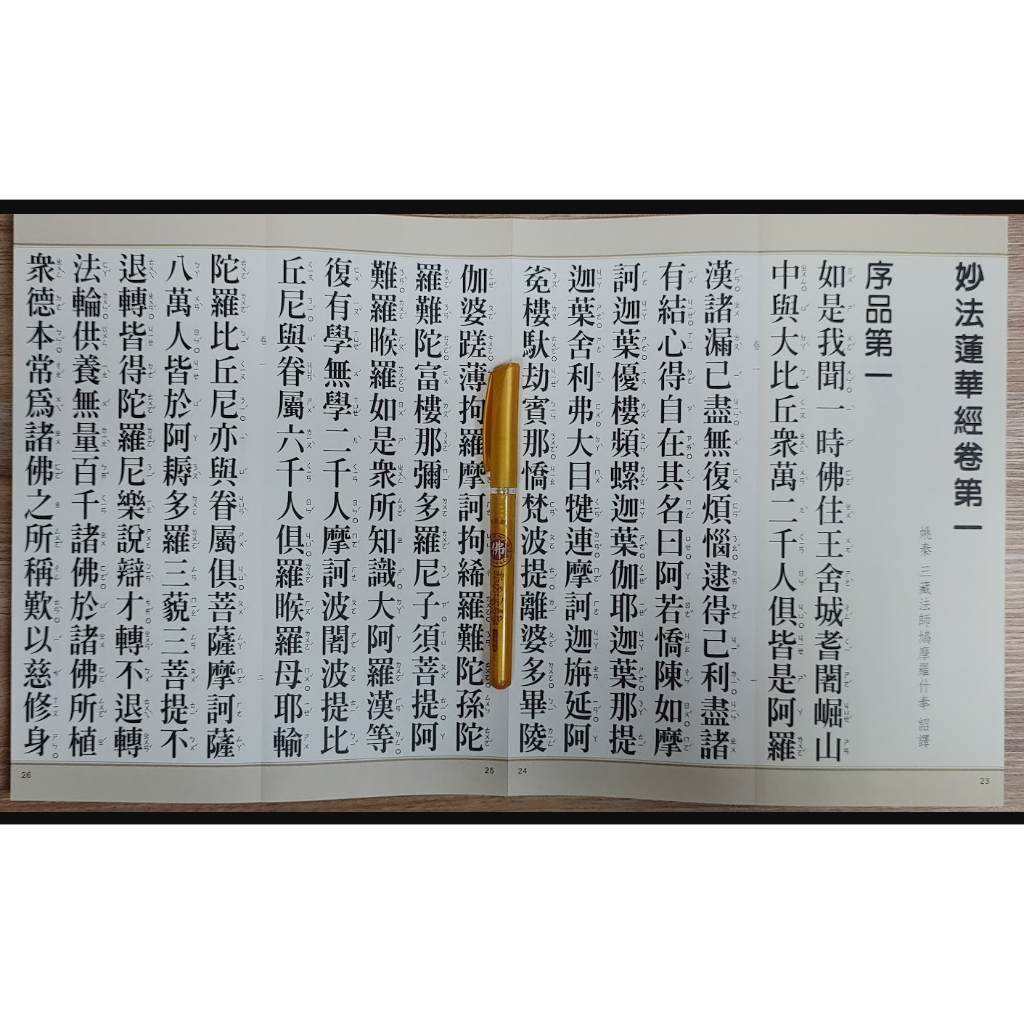 妙法蓮華經卷第一
姚秦三藏法師鳩摩羅什奉 詔譯
序品第一
如是我聞一時佛住王舍城耆闍崛山
中與大比丘衆萬二千人俱皆是阿羅
漢諸漏已盡無復煩惱逮得己利盡諸
有結心得自在其名曰阿若憍陳如摩
訶迦葉優樓頻螺迦葉伽耶迦葉那提
迦葉舍利弗大目犍連摩訶迦旃延阿
㝹樓馱劫賓那憍梵波提離婆多畢陵
伽婆蹉薄拘羅摩訶拘絺羅難陀孫陀
羅難陀富樓那彌多羅尼子須菩提阿
難羅睺羅如是衆所知識大阿羅漢等
復有學無學二千人摩訶波闍波提比
丘尼與眷屬六千人俱羅睺羅母耶輸
陀羅比丘尼亦與眷屬俱菩薩摩訶薩
八萬人皆於阿耨多羅三藐三菩提不
退轉皆得陀羅尼樂說辯才轉不退轉
法輪供養無量百千諸佛於諸佛所植
衆德本常爲諸佛之所稱歎以慈修身
佛
卷一
一
卷一
二
23
24
25
26